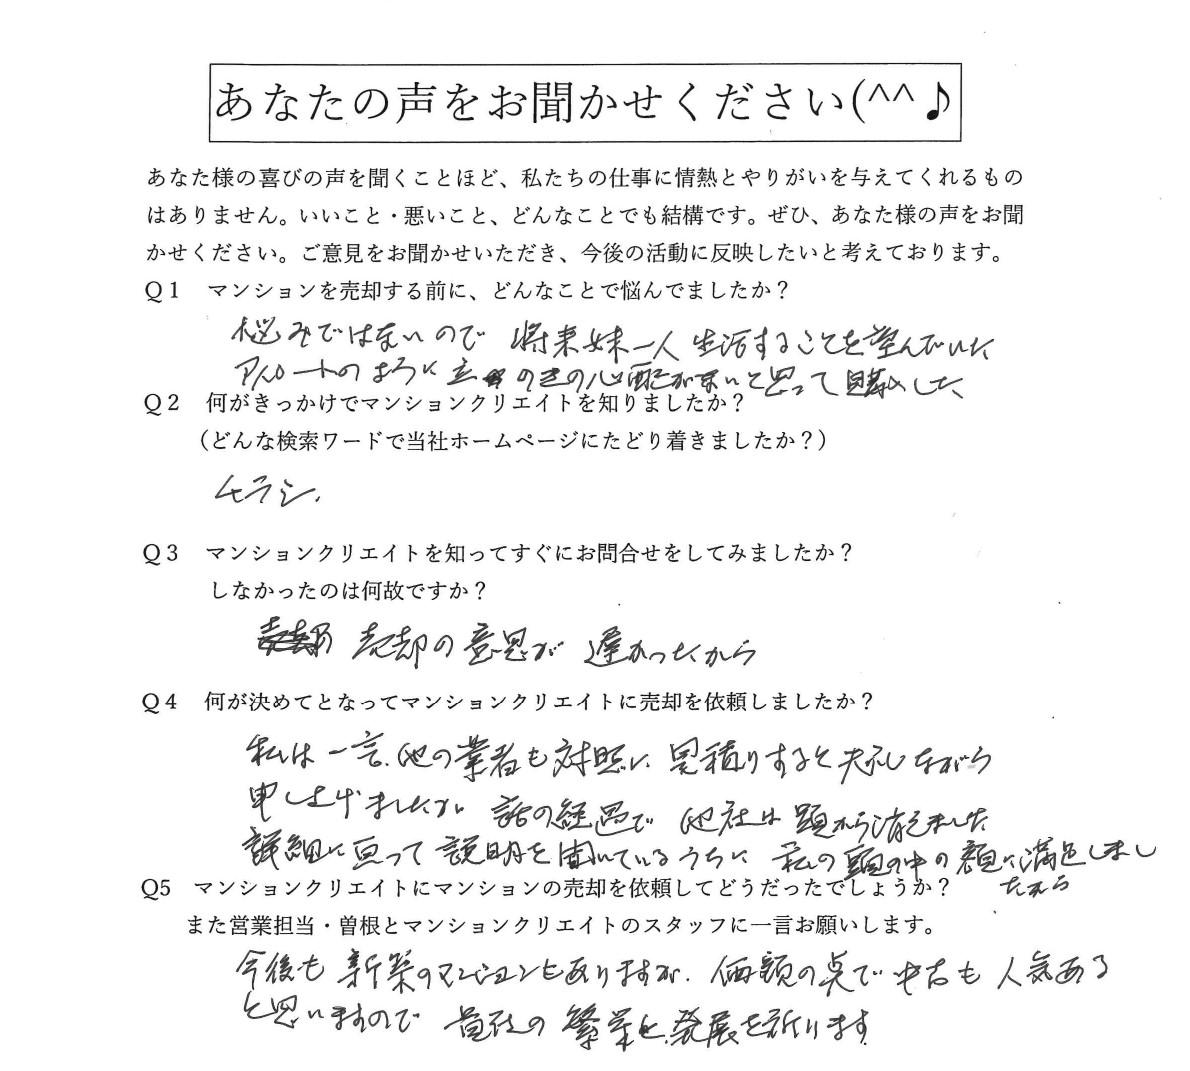 あなたの声をお聞かせください(^^♪
あなた様の喜びの声を聞くことほど、私たちの仕事に情熱とやりがいを与えてくれるもの
はありません。いいこと・悪いこと、どんなことでも結構です。ぜひ、あなた様の声をお聞
かせください。ご意見をお聞かせいただき、今後の活動に反映したいと考えております。
Q1 マンションを売却する前に、どんなことで悩んでましたか？
悩みではないので 将来妹一人生活することを望んでいた
アパートのように立 のきの心配がないと思って購入した
Q2 何がきっかけでマンションクリエイトを知りましたか？
（どんな検索ワードで当社ホームページにたどり着きましたか？）
チラシ.
Q3 マンションクリエイトを知ってすぐにお問合せをしてみましたか？
しなかったのは何故ですか？
売却の意思が 遅かったから
Q4 何が決めてとなってマンションクリエイトに売却を依頼しましたか？
私は一言、他の業者も対照に 見積りすると失礼しながら
申し上げましたが 話の経過で 他社は 頭から消えました
詳細に亘って説明を聞いているうちに 私の頭の中の額に満足しまし
たから
Q5 マンションクリエイトにマンションの売却を依頼してどうだったでしょうか？
また営業担当・曽根とマンションクリエイトのスタッフに一言お願いします。
今後も 新築のマンションもありますが、価額の点で中古も人気ある
と思いますので 貴社の 繁栄と発展を祈ります